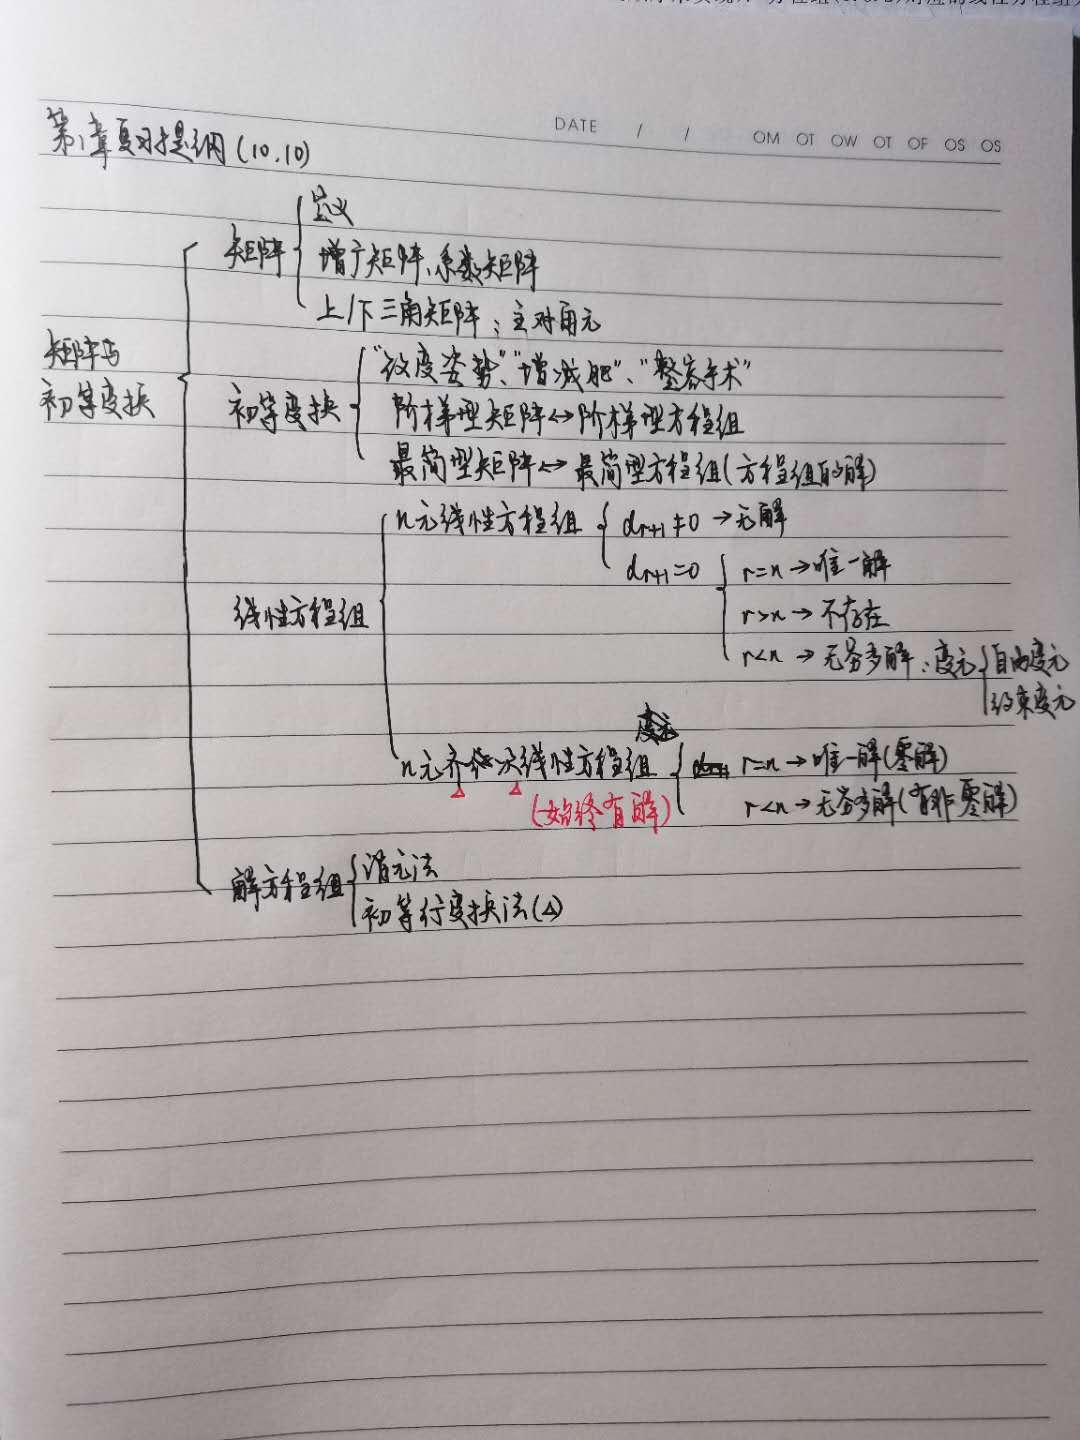 DATE / / OM OT OW OT OF OS OS
第1章复习提纲(10.10)
矩阵与
初等变换
矩阵
定义
增广矩阵、系数矩阵
上/下三角矩阵:主对角元
初等变换
"改变姿势"、"增减肥"、"整容手术"
阶梯型矩阵↔阶梯型方程组
最简型矩阵↔最简型方程组(方程组的解)
线性方程组
n元线性方程组
dr+1≠0→无解
dr+1=0
r=n→唯一解
r>n→不存在
r<n→无穷多解:变元
自由变元
约束变元
n元齐次线性方程组
(始终有解)
r=n→唯一解(零解)
r<n→无穷多解(有非零解)
解方程组
消元法
初等行变换法(△)